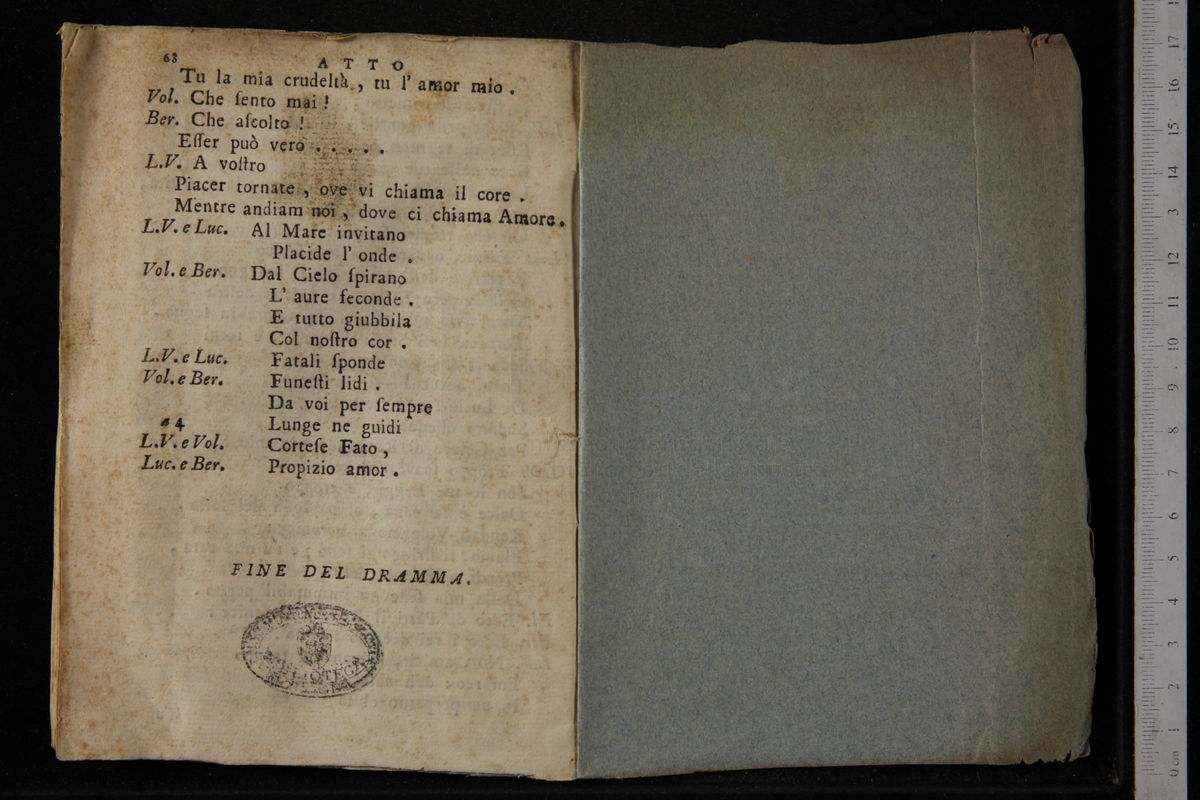 68
ATTO
Tu la mia crudeltà, tu l' amor mio.
Vol. Che ſento mai!
Ber. Che aſcolto!
Eſſer può vero . . . . .
L.V. A voſtro
Piacer tornate, ove vi chiama il core.
Mentre andiam noi, dove ci chiama Amore.
L.V. e Luc. Al Mare invitano
Placide l' onde.
Vol. e Ber. Dal Cielo ſpirano
L' aure feconde.
E tutto giubbila
Col noſtro cor.
L.V. e Luc. Fatali ſponde
Vol. e Ber. Funeſti lidi.
Da voi per ſempre
a 4 Lunge ne guidi
L.V. e Vol. Corteſe Fato,
Luc. e Ber. Propizio amor.
FINE DEL DRAMMA.
BIBLIOTECA
BOLOGNA
0 cm 1 2 3 4 5 6 7 8 9 10 11 12 13 14 15 16 17